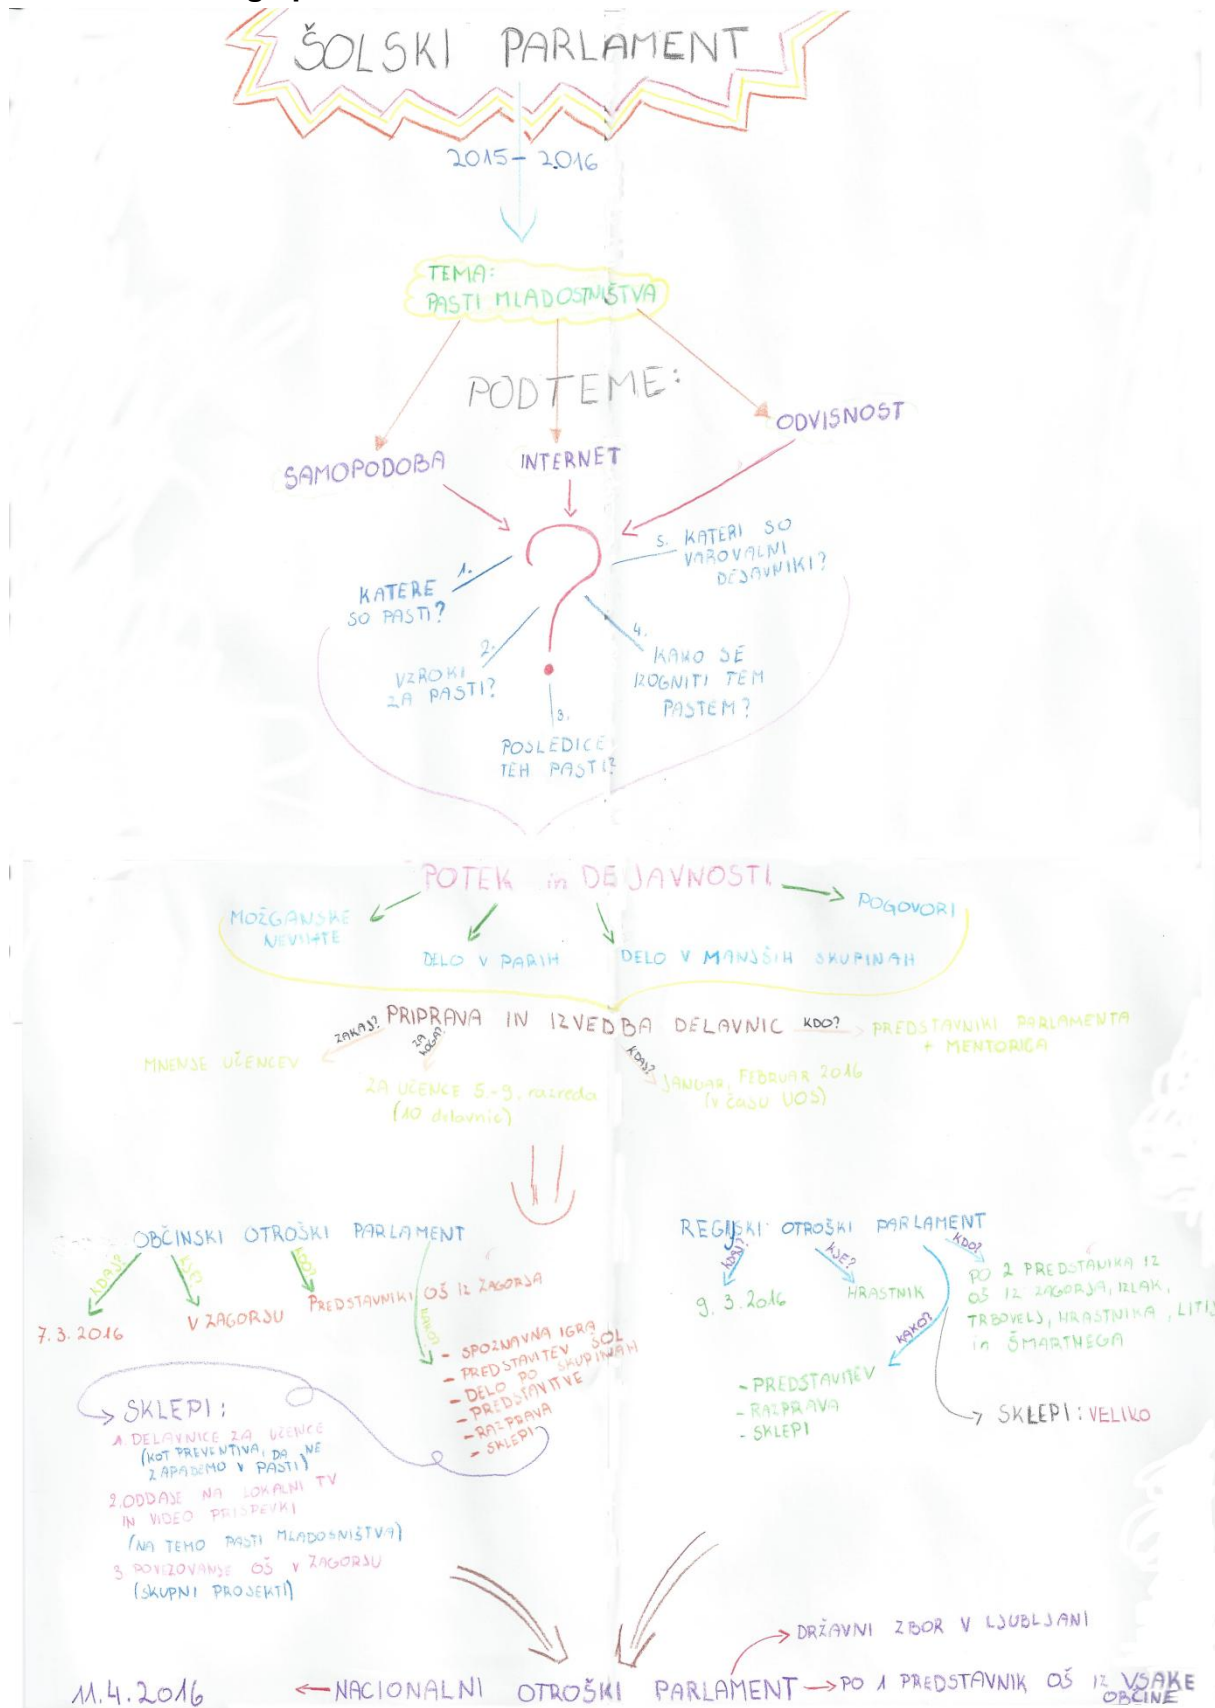 ŠOLSKI PARLAMENT
2015 - 2016
TEMA:
PASTI MLADOSTNIŠTVA
PODTEME:
SAMOPODOBA
INTERNET
ODVISNOST
1. KATERE
SO PASTI?
2. VZROKI
ZA PASTI?
3.
POSLEDICE
TEH PASTI?
4.
KAKO SE
IZOGNITI TEM
PASTEM?
5. KATERI SO
VAROVALNI
DEJAVNIKI?
POTEK in DEJAVNOSTI
MOŽGANSKE
NEVIHTE
DELO V PARIH
DELO V MANJŠIH SKUPINAH
POGOVORI
PRIPRAVA IN IZVEDBA DELAVNIC
ZAKAJ?
MNENJE UČENCEV
ZA
KOGA?
ZA UČENCE 5.-9. razreda
(10 delavnic)
KDAJ?
JANUAR, FEBRUAR 2016
(v času UOS)
KDO?
PREDSTAVNIKI PARLAMENTA
+ MENTORICA
OBČINSKI OTROŠKI PARLAMENT
KDAJ?
7.3.2016
KJE?
V ZAGORJU
KDO?
PREDSTAVNIKI OŠ IZ ZAGORJA
KAKO?
- SPOZNAVNA IGRA
- PREDSTAVITEV ŠOL
- DELO PO SKUPINAH
- PREDSTAVITVE
- RAZPRAVA
- SKLEPI
SKLEPI:
1. DELAVNICE ZA UČENCE
(KOT PREVENTIVA, DA NE
ZAPADEMO V PASTI)
2. ODDAJE NA LOKALNI TV
IN VIDEO PRISPEVKI
(NA TEMO PASTI MLADOSNIŠTVA)
3. POVEZOVANJE OŠ V ZAGORJU
(SKUPNI PROJEKTI)
REGIJSKI OTROŠKI PARLAMENT
KDAJ?
9.3.2016
KJE?
HRASTNIK
KDO?
PO 2 PREDSTANIKA IZ
OŠ IZ ZAGORJA, IZLAK,
TRBOVELJ, HRASTNIKA, LITIJ
in ŠMARTNEGA
KAKO?
- PREDSTAVITEV
- RAZPRAVA
- SKLEPI
SKLEPI: VELIKO
NACIONALNI OTROŠKI PARLAMENT
11.4.2016
DRŽAVNI ZBOR V LJUBLJANI
PO 1 PREDSTAVNIK OŠ IZ VSAKE
OBČINE